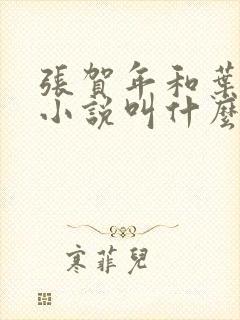 張賀年和葉
小說叫什麼
寒菲兒